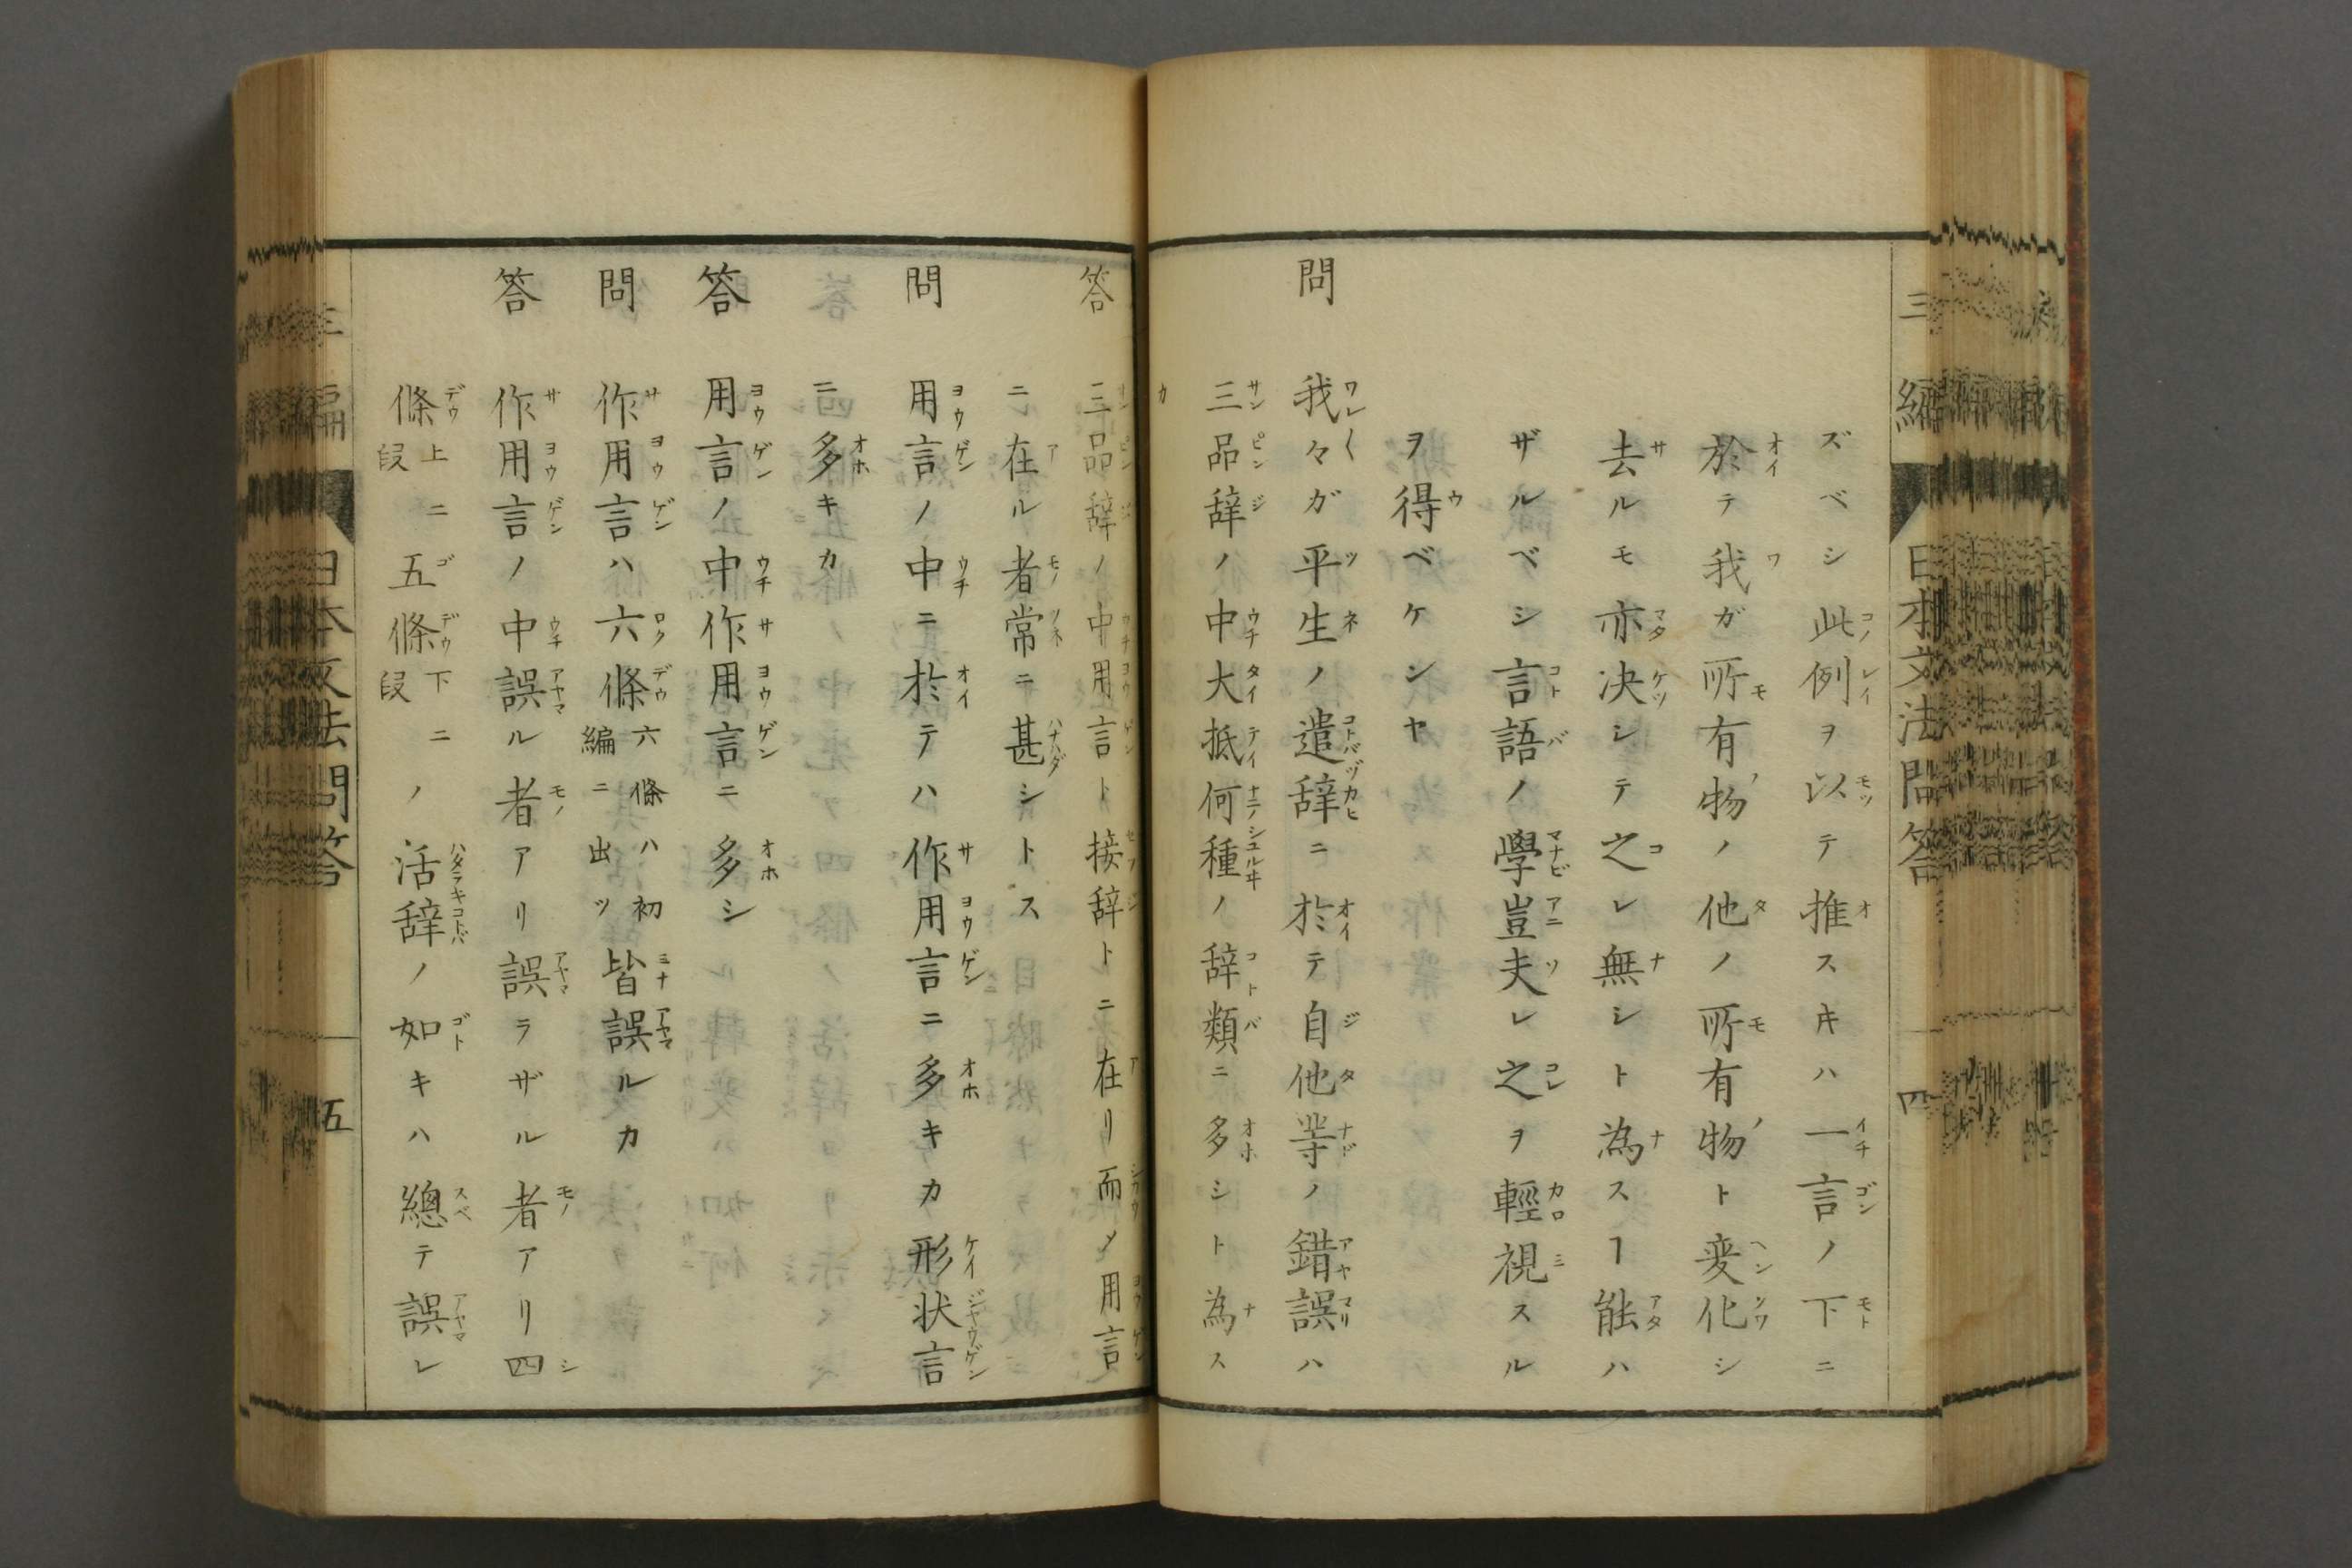 三編　日本文法問答　四
ズベシ此例ヲ以テ推スキハ一言ノ下ニ
於テ我ガ所有物ノ他ノ所有物ト変化シ
去ルモ亦决シテ之レ無シト為スヿ能ハ
ザルベシ言語ノ學豈夫レ之ヲ輕視スル
ヲ得ベケンヤ
問　我々ガ平生ノ遣辞ニ於テ自他等ノ錯誤ハ
三品辞ノ中大抵何種ノ辞類ニ多シト為ス
カ
答　三品辞ノ中用言ト接辞トニ在リ而メ用言
ニ在ル者常ニ甚シトス
問　用言ノ中ニ於テハ作用言ニ多キカ形状言
ニ多キカ
答　用言ノ中作用言ニ多シ
問　作用言ハ六條六條ハ初編ニ出ツ皆誤ルカ
答　作用言ノ中誤ル者アリ誤ラザル者アリ四
條上ニ段五條下ニ段ノ活辞ノ如キハ總テ誤レ
三編　日本文法問答　五